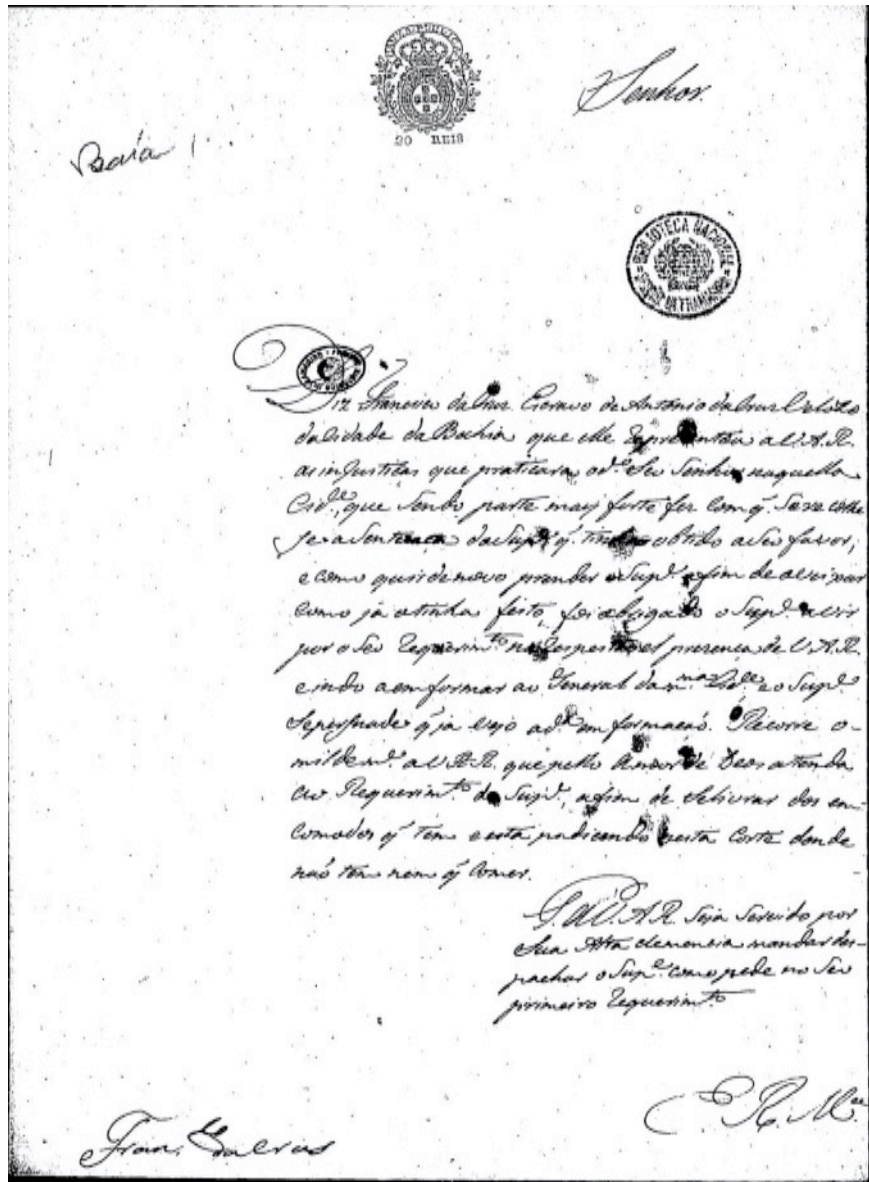 20 REIS
Senhor.
Baía
BIBLIOTECA NACIONAL
Diz Francisco da Cruz Escravo de Antonio da Cruz Velozo
da Cidade da Bachia que elle reprezentou a V.A.R.
as injusticas que praticara o d.º Seu Senhor naquella
Cid.e, que sendo parte mais forte fez com q̃. Se
Se a Sentenca do Sup.e q̃. tinha obtido a Seu favor;
e como quis de novo prender o Sup.e afim de
como já o tinha feito, foi obrigado o Sup.e a vir
por o Seu requerim.to na Respeitavel prezenca de V.A.R.
e indo a emformar ao General da m.ma Cid.e e o Sup.e
Se persuade q̃ ja veio a d.a emformacaó. Recorre o-
mildem.e a V.A.R. que pello Amor de Deos atenda
ao Requerim.to do Sup.e, afim de Selivrar dos en-
comodos q̃ tem e está padicendo nesta Corte donde
naó tem nem q̃ Comer.
P. a V.A.R. Seja Servido por
Sua Alta clemencia mandar des-
pachar o Sup.e como pede no Seu
primeiro requerim.to
E. R. M.ce
Fran.co da Crus